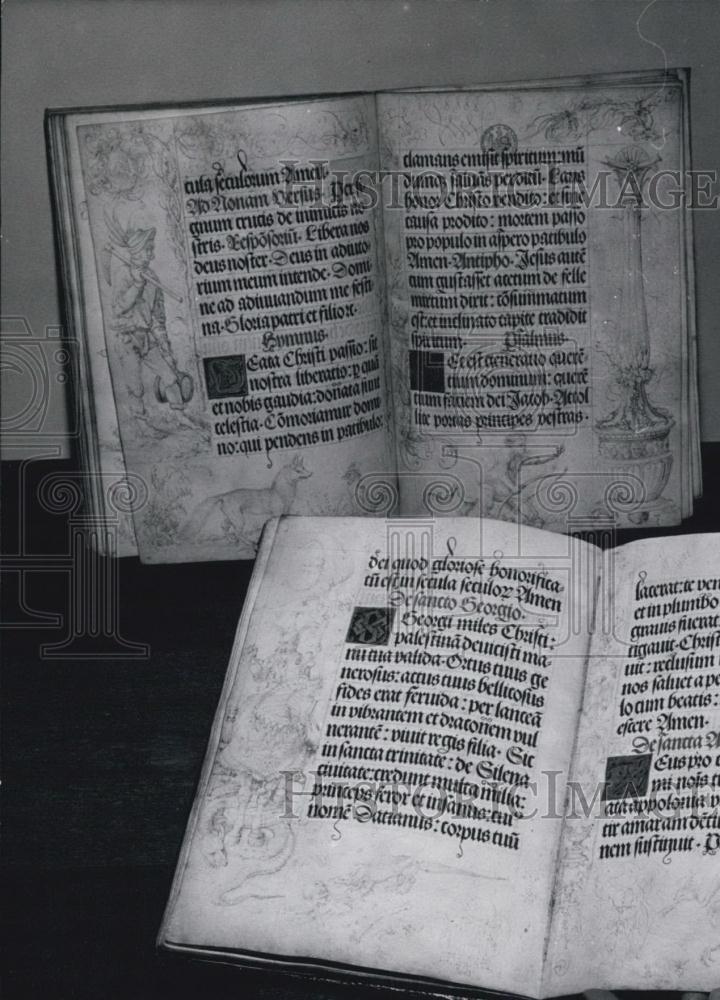 cula seculorum Amen.
Ad Nonam Versus. Per si
gnum crucis de inimicis no
stris. Respõsoriũ. Libera nos
deus noster. Deus in adiuto
rium meum intende. Domi
ne ad adiuuandum me festi
na. Gloria patri et filio et.
Hymnus.
Beata Christi passio: sit
nostra liberatio: p̱ quã
et nobis gaudia: donata sunt
celestia. Cõmoriamur domi
no: qui pendens in patibulo
clamans emisit spiritum: mũ
dumq̃ saluãs perditũ. Laus
honor Christo vendito: et sine
causa prodito: mortem passo
pro populo in aspero patibulo
Amen. Antipho. Jesus autẽ
cum gustasset acetum de felle
mixtum dixit: cõsummatum
est: et inclinato capite tradidit
spiritum. Psalmus.
Ec est generatio querẽ
tium dominum: querẽ
tium faciem dei Jacob. Attol
lite portas principes vestras.
dei quod gloriose honorifica-
tũ est in secula seculoꝝ Amen
De sancto Georgio.
Georgi miles Christi:
palestinã deuicisti ma-
nu tua valida. Ortus tuus ge
nerosus: actus tuus bellicosus
fides erat feruida: per lanceã
in vibrantem et draconem vul
nerantẽ: viuit regis filia. Sic
in sancta trinitate: de Silena
ciuitate: credunt multa milia:
princeps feror et insanus: cui
nomẽ Dacianus: corpus tuũ
lacerat: te ven
et in plumbo
grauis fuerat:
tigauit. Christ
uit: reclusum
nos saluet a pe
lo cum beatis:
escere Amen.
De sancta A
Eus pro c
mi nõis t
ata appolonia
tir amaram dẽti
nem sustinuit. P
HISTORIC IMAGES
HISTORIC IMAGES